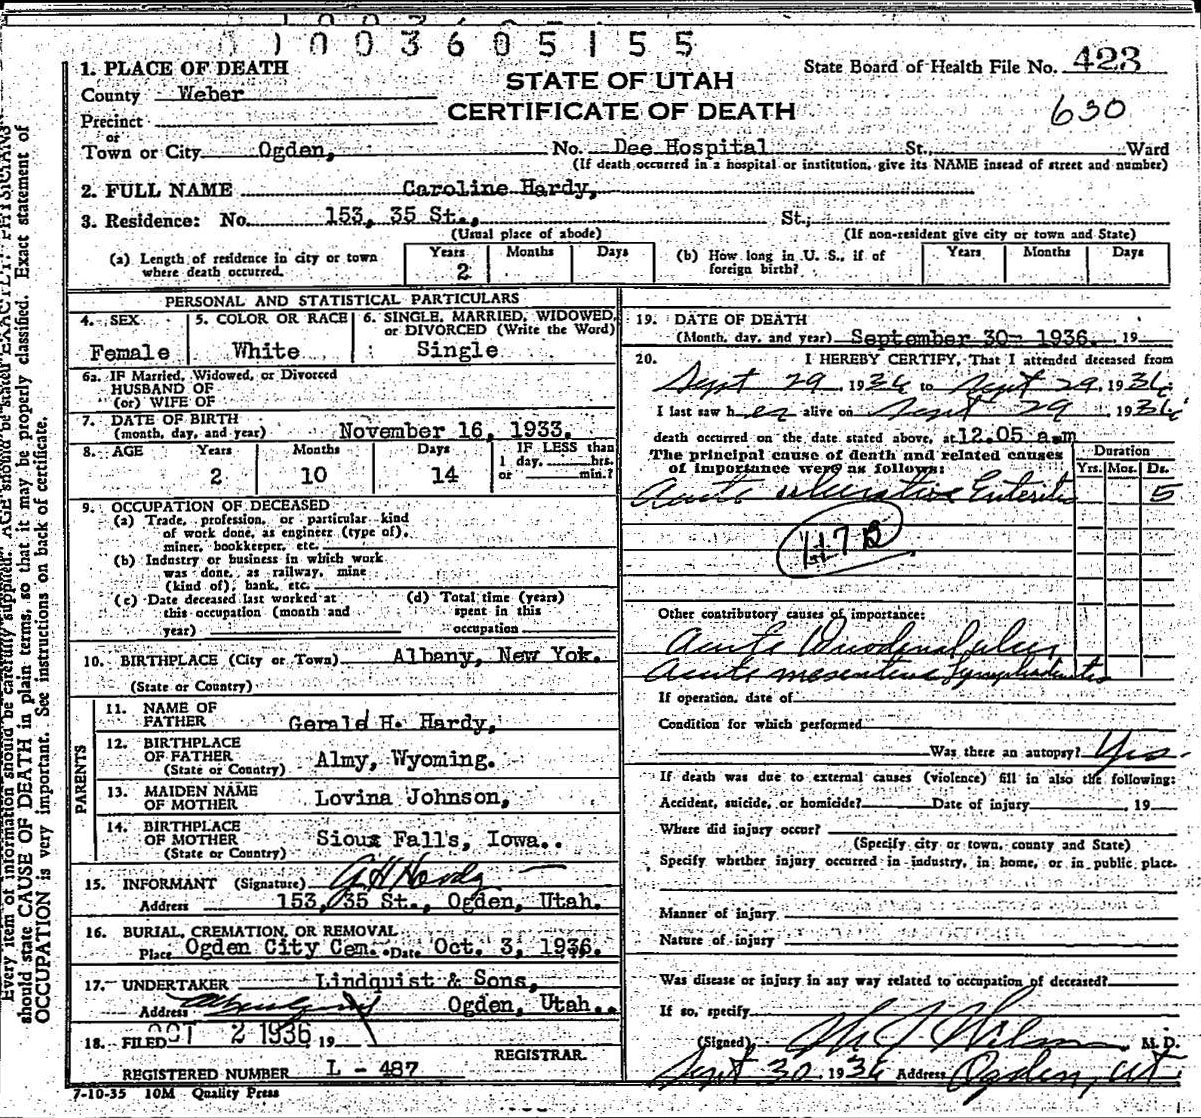 1003605155
1. PLACE OF DEATH
County Weber
Precinct
or
Town or City Ogden, No. Dee Hospital St., Ward
(If death occurred in a hospital or institution, give its NAME insead of street and number)
STATE OF UTAH
CERTIFICATE OF DEATH
State Board of Health File No. 423
630
2. FULL NAME Caroline Hardy,
3. Residence: No. 153, 35 St., St.,
(Usual place of abode) (If non-resident give city or town and State)
(a) Length of residence in city or town where death occurred. Years 2 Months Days
(b) How long in U. S., if of foreign birth? Years Months Days
PERSONAL AND STATISTICAL PARTICULARS
4. SEX 5. COLOR OR RACE 6. SINGLE, MARRIED, WIDOWED, or DIVORCED (Write the Word)
Female White Single
6a. IF Married, Widowed, or Divorced
HUSBAND OF
(or) WIFE OF
7. DATE OF BIRTH
(month, day, and year) November 16, 1933.
8. AGE Years Months Days IF LESS than
2 10 14 1 day, hrs. or min.?
9. OCCUPATION OF DECEASED
(a) Trade, profession, or particular kind
of work done, as engineer (type of),
miner, bookkeeper, etc.
(b) Industry or business in which work
was done, as railway, mine
(kind of), bank, etc.
(c) Date deceased last worked at this occupation (month and year)
(d) Total time (years) spent in this occupation
10. BIRTHPLACE (City or Town) Albany, New Yok.
(State or Country)
PARENTS
11. NAME OF FATHER Gerald H. Hardy,
12. BIRTHPLACE OF FATHER Almy, Wyoming.
(State or Country)
13. MAIDEN NAME OF MOTHER Lovina Johnson,
14. BIRTHPLACE OF MOTHER Sioux Falls, Iowa..
(State or Country)
15. INFORMANT (Signature) G H Hardy
Address 153, 35 St., Ogden, Utah.
16. BURIAL, CREMATION, OR REMOVAL
Place Ogden City Cem. Date Oct. 3, 1936.
17. UNDERTAKER Lindquist & Sons,
Address Ogden, Utah..
18. FILED OCT 2 1936 19
REGISTRAR.
REGISTERED NUMBER L - 487
7-10-35 10M Quality Press
19. DATE OF DEATH
(Month, day, and year) September 30- 1936. 19
20. I HEREBY CERTIFY, That I attended deceased from
Sept 29, 1936 to Sept 29, 1936
I last saw her alive on Sept 29, 1936
death occurred on the date stated above, at 12.05 a.m
The principal cause of death and related causes
of importance were as follows:
Duration
Yrs. Mos. Ds.
Acute ulcerative Enteritis 5
117 B
Other contributory causes of importance:
Acute Duodenal ulcer
Acute mesenteric lymphadenitis
If operation, date of
Condition for which performed
Was there an autopsy? Yes
If death was due to external causes (violence) fill in also the following:
Accident, suicide, or homicide? Date of injury , 19
Where did injury occur?
(Specify city or town, county and State)
Specify whether injury occurred in industry, in home, or in public place.
Manner of injury
Nature of injury
Was disease or injury in any way related to occupation of deceased?
If so, specify
(Signed) M. D.
Sept 30, 1936 Address Ogden, Ut.
Every item of information should be carefully supplied. AGE should be stated EXACTLY. PHYSICIANS
should state CAUSE OF DEATH in plain terms, so that it may be properly classified. Exact statement of
OCCUPATION is very important. See instructions on back of certificate.